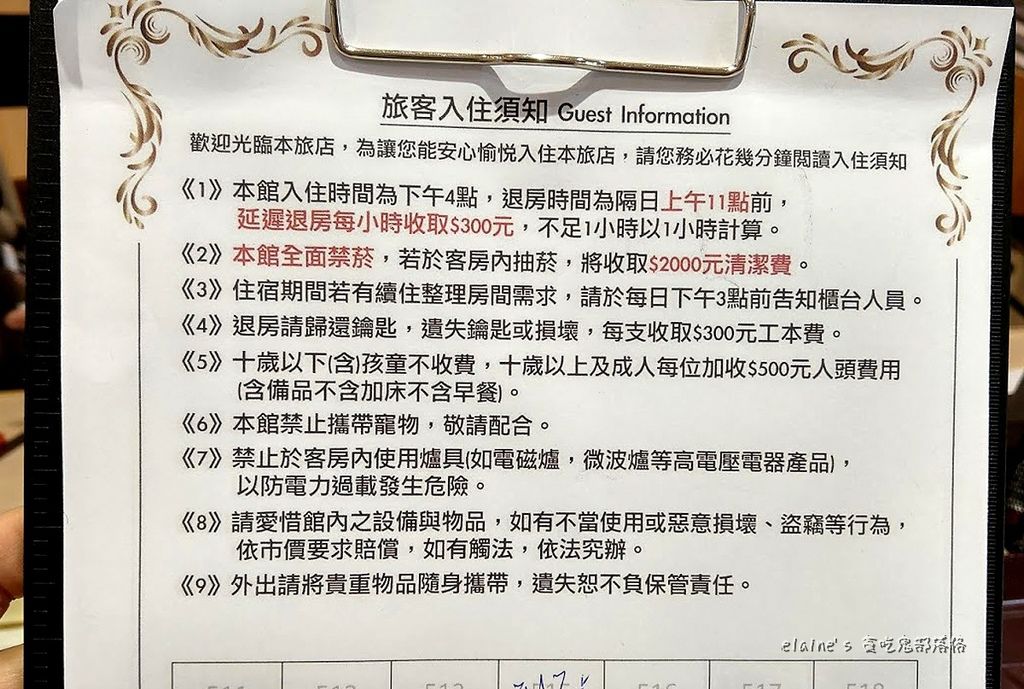 旅客入住須知 Guest Information
歡迎光臨本旅店，為讓您能安心愉悅入住本旅店，請您務必花幾分鐘閱讀入住須知
《1》本館入住時間為下午4點，退房時間為隔日上午11點前，
延遲退房每小時收取$300元，不足1小時以1小時計算。
《2》本館全面禁菸，若於客房內抽菸，將收取$2000元清潔費。
《3》住宿期間若有續住整理房間需求，請於每日下午3點前告知櫃台人員。
《4》退房請歸還鑰匙，遺失鑰匙或損壞，每支收取$300元工本費。
《5》十歲以下(含)孩童不收費，十歲以上及成人每位加收$500元人頭費用
(含備品不含加床不含早餐)。
《6》本館禁止攜帶寵物，敬請配合。
《7》禁止於客房內使用爐具(如電磁爐，微波爐等高電壓電器產品)，
以防電力過載發生危險。
《8》請愛惜館內之設備與物品，如有不當使用或惡意損壞、盜竊等行為，
依市價要求賠償，如有觸法，依法究辦。
《9》外出請將貴重物品隨身攜帶，遺失恕不負保管責任。
elaine's 貪吃鬼部落格